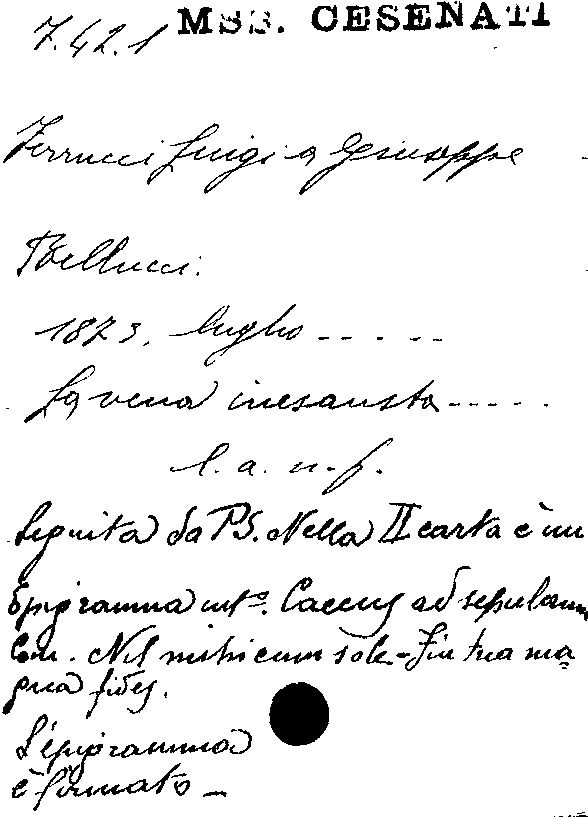 7.42.1 MSS. CESENATI
Ferrucci Luigi a Giuseppe
Bellucci.
1823, luglio - - - - -
La vena inesausta - - - - -
l. a. n. f.
Seguita da PS. Nella II carta è un
Epigramma int°. Caecus ad sepulcrum
Com. Nil mihi cum sole - Fin tua ma
gna fides.
L'epigramma
è firmato -